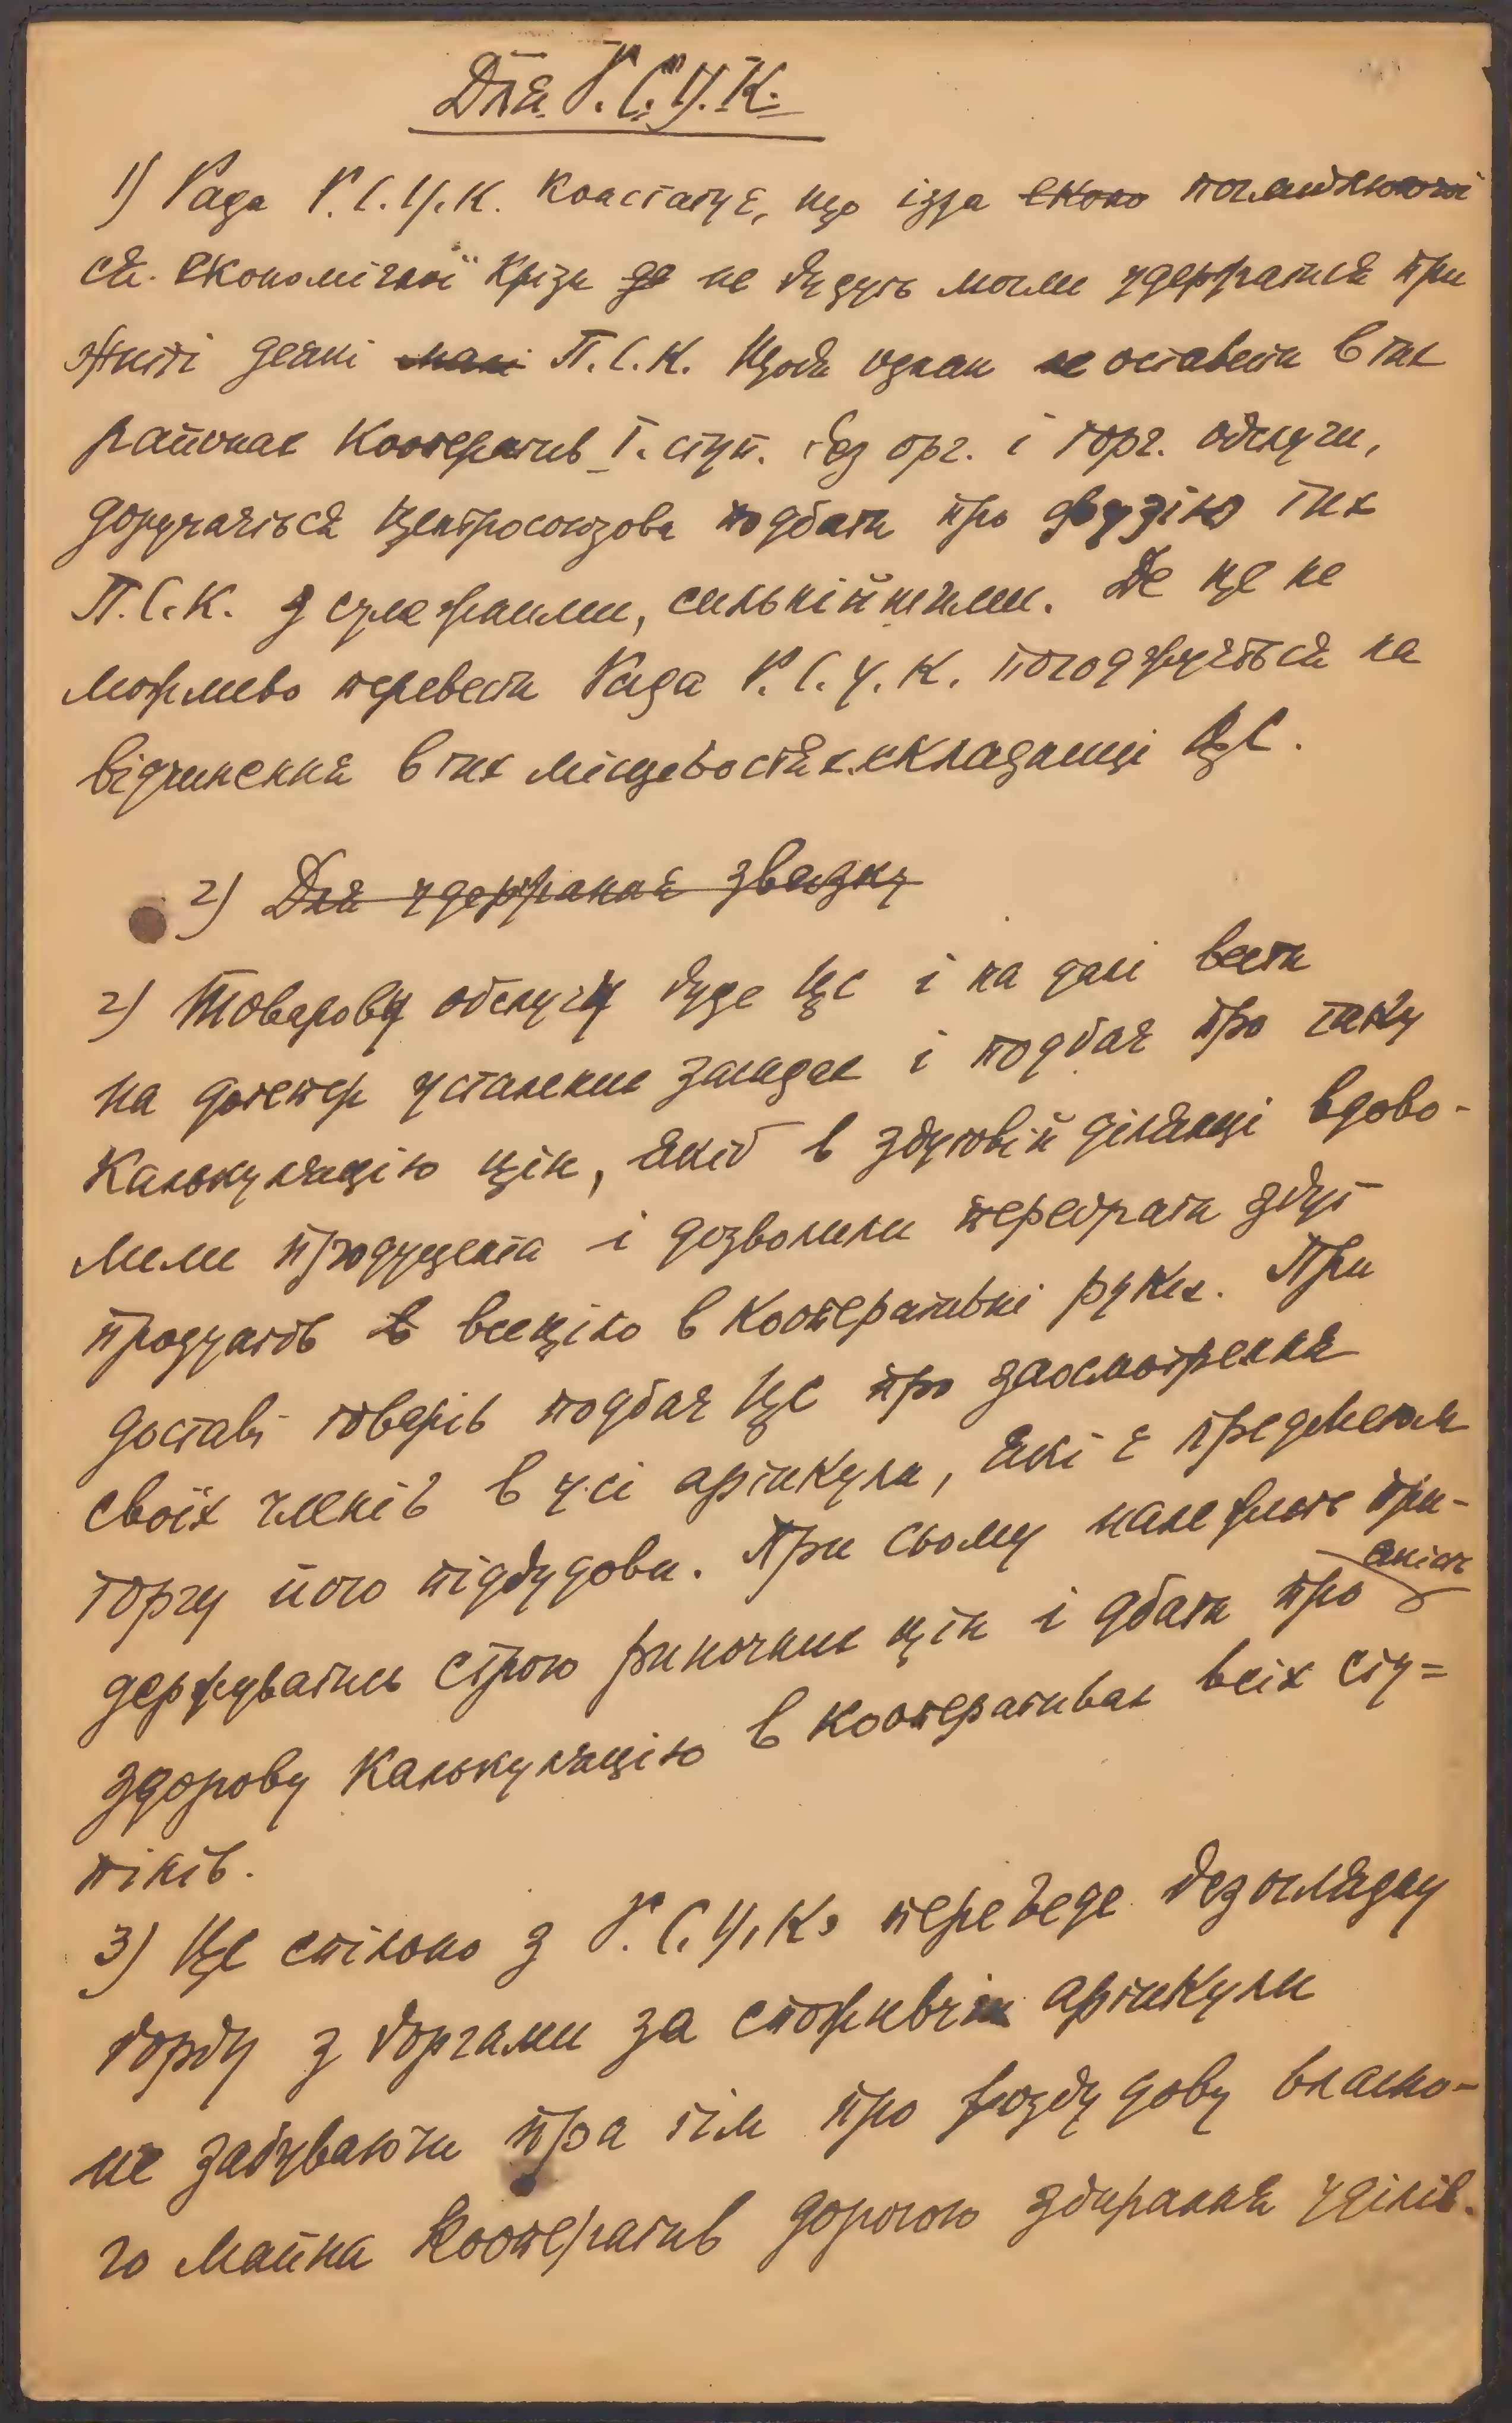 Для Р.С.У.К.
1) Рада Р.С.У.К. констатує, що ізза еконо поглиблюючої
ся економічної крізи де не будуть могли удержатися при
житті деякі малі П.С.К. Щоби однак не оставити в тих
районах кооператив І. ступ. без орг. і торг. обслуги,
доручається Центросоюзови подбати про фузію тих
П.С.К. з сумежними, сильнійшими. Де це не
можливо перевести Рада Р.С.У.К. погоджується на
відчинення в тих місцевостях складниці ЦС.
2) Для удержання звязку
2) Товарову обслугу буде ЦС і на далі вести
на дотепер усталених засадах і подбає про таку
калькуляцію цін, якіб в збутовій ділянці вдово-
лили продуцента і дозволили перебрати збут
продуктів в всеціло в кооперативні руки. При
доставі товарів подбає ЦС про заосмотрення
своїх членів в усі артикули, які є предметом
торгу його підбудови. При сьому належить при-
держуватись строго ринкових цін і дбати про
здорову калькуляцію в кооперативах всіх сту=
пінів.
3) ЦС спільно з Р.С.У.К. переведе безоглядну
борбу з боргами за споживчі артикули
не забуваючи при тім про розбудову власно-
го майна кооператив дорогою збирання уділів.